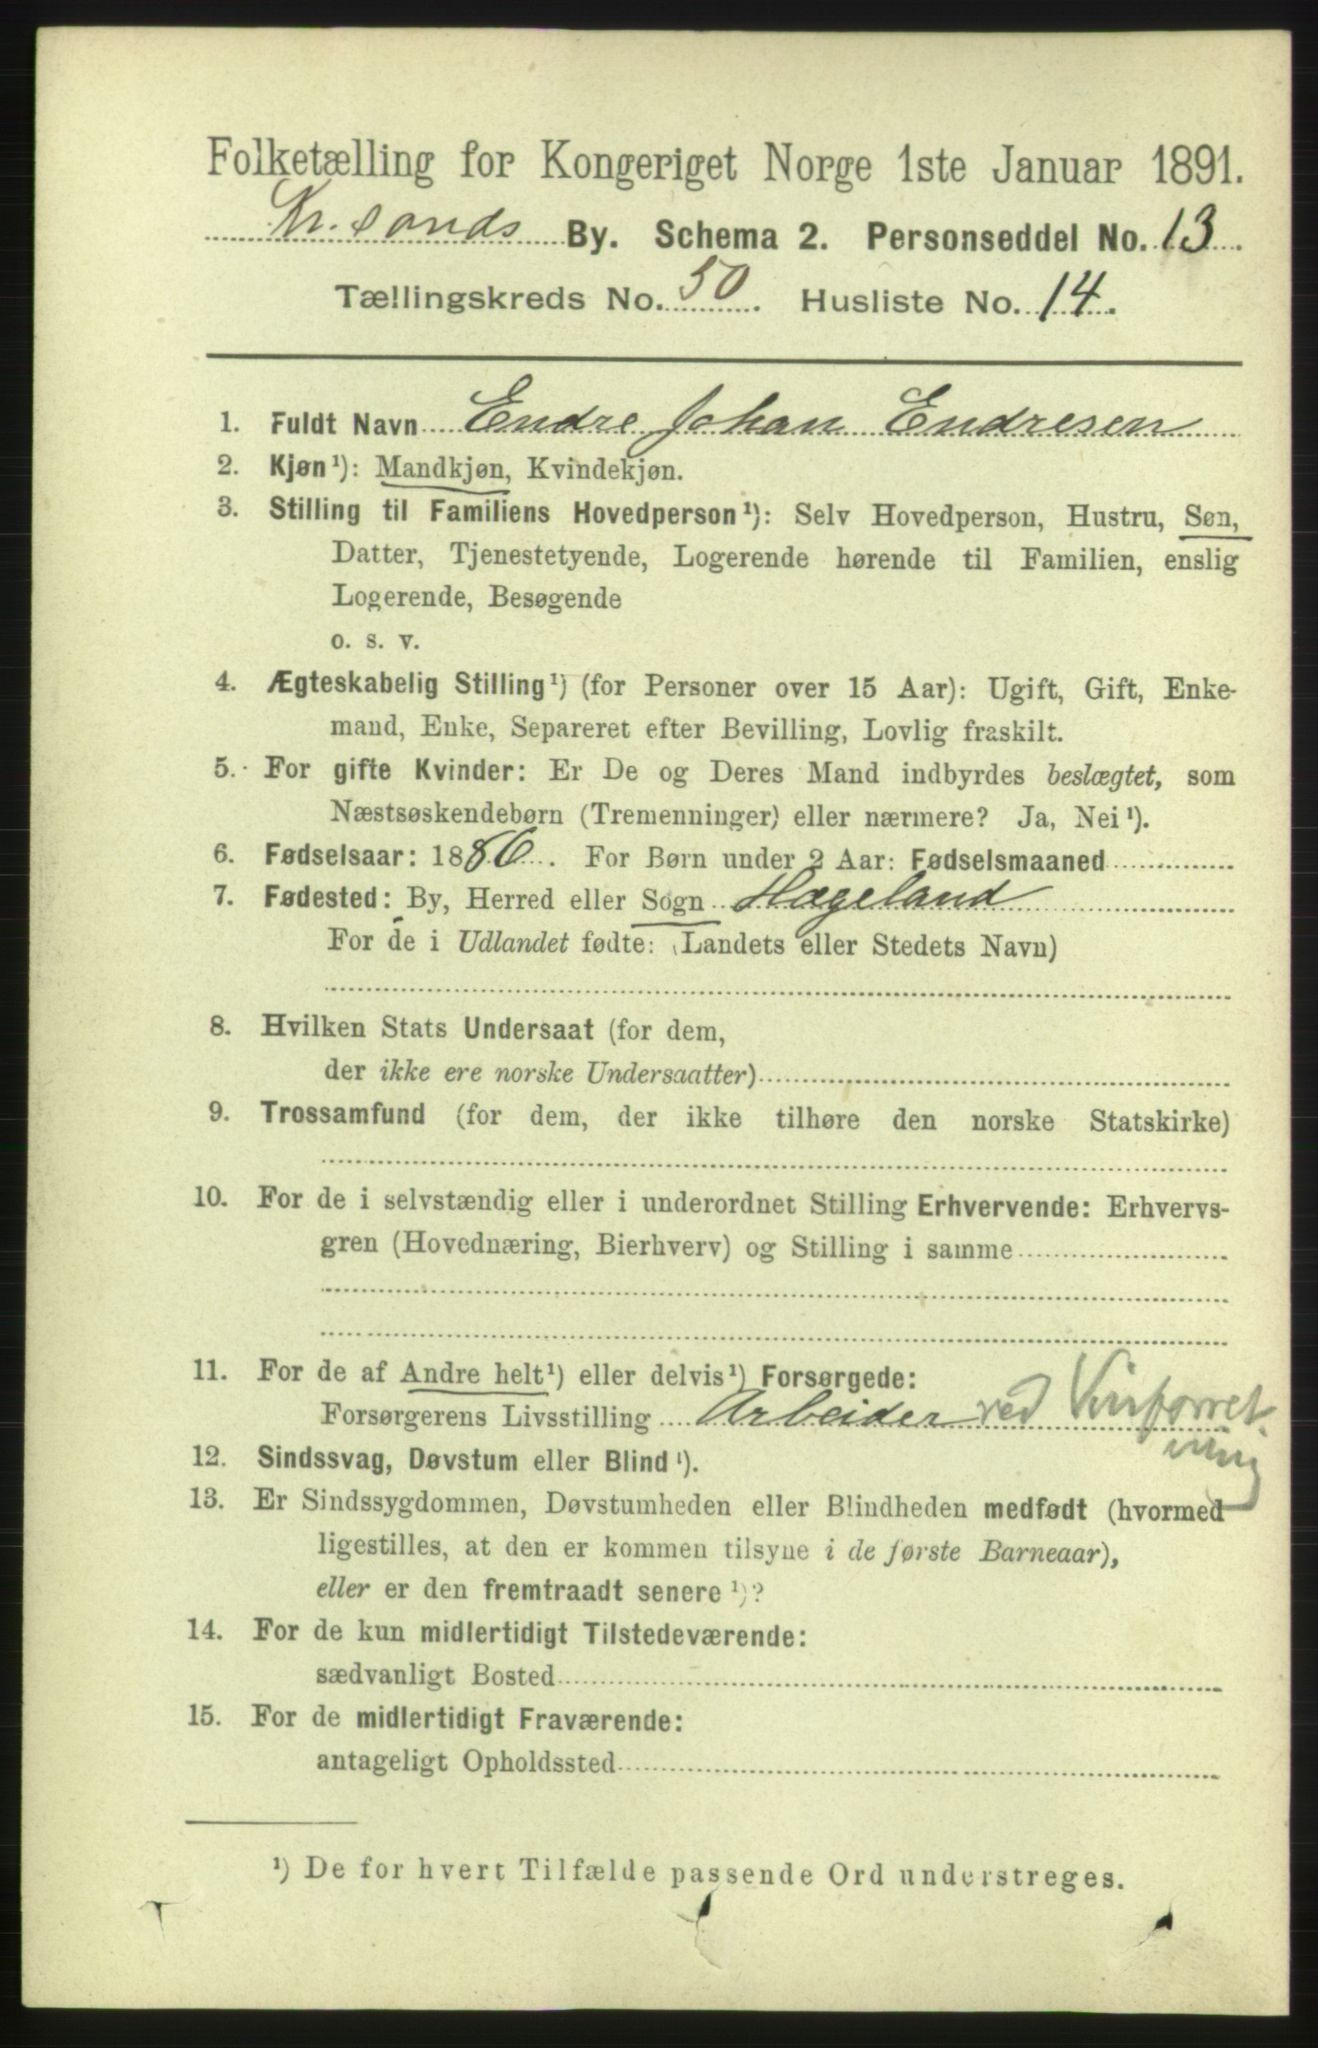 Folketælling for Kongeriget Norge 1ste Januar 1891.
Kr.sands By. Schema 2. Personseddel No. 13.
Tællingskreds No. 50. Husliste No. 14.
1. Fuldt Navn Endre Johan Endresen
2. Kjøn¹): Mandkjøn, Kvindekjøn.
3. Stilling til Familiens Hovedperson¹): Selv Hovedperson, Hustru, Søn,
Datter, Tjenestetyende, Logerende hørende til Familien, enslig
Logerende, Besøgende
o. s. v.
4. Ægteskabelig Stilling¹) (for Personer over 15 Aar): Ugift, Gift, Enke-
mand, Enke, Separeret efter Bevilling, Lovlig fraskilt.
5. For gifte Kvinder: Er De og Deres Mand indbyrdes beslægtet, som
Næstsøskendebørn (Tremenninger) eller nærmere? Ja, Nei¹).
6. Fødselsaar: 1886. For Børn under 2 Aar: Fødselsmaaned
7. Fødested: By, Herred eller Sogn Hægeland
For de i Udlandet fødte: (Landets eller Stedets Navn)
8. Hvilken Stats Undersaat (for dem,
der ikke ere norske Undersaatter)
9. Trossamfund (for dem, der ikke tilhøre den norske Statskirke)
10. For de i selvstændig eller i underordnet Stilling Erhvervende: Erhvervs-
gren (Hovednæring, Bierhverv) og Stilling i samme
11. For de af Andre helt¹) eller delvis¹) Forsørgede:
Forsørgerens Livsstilling Arbeider ved Vinforret
ning
12. Sindssvag, Døvstum eller Blind¹).
13. Er Sindssygdommen, Døvstumheden eller Blindheden medfødt (hvormed
ligestilles, at den er kommen tilsyne i de første Barneaar),
eller er den fremtraadt senere¹)?
14. For de kun midlertidigt Tilstedeværende:
sædvanligt Bosted
15. For de midlertidigt Fraværende:
antageligt Opholdssted
¹) De for hvert Tilfælde passende Ord understreges.